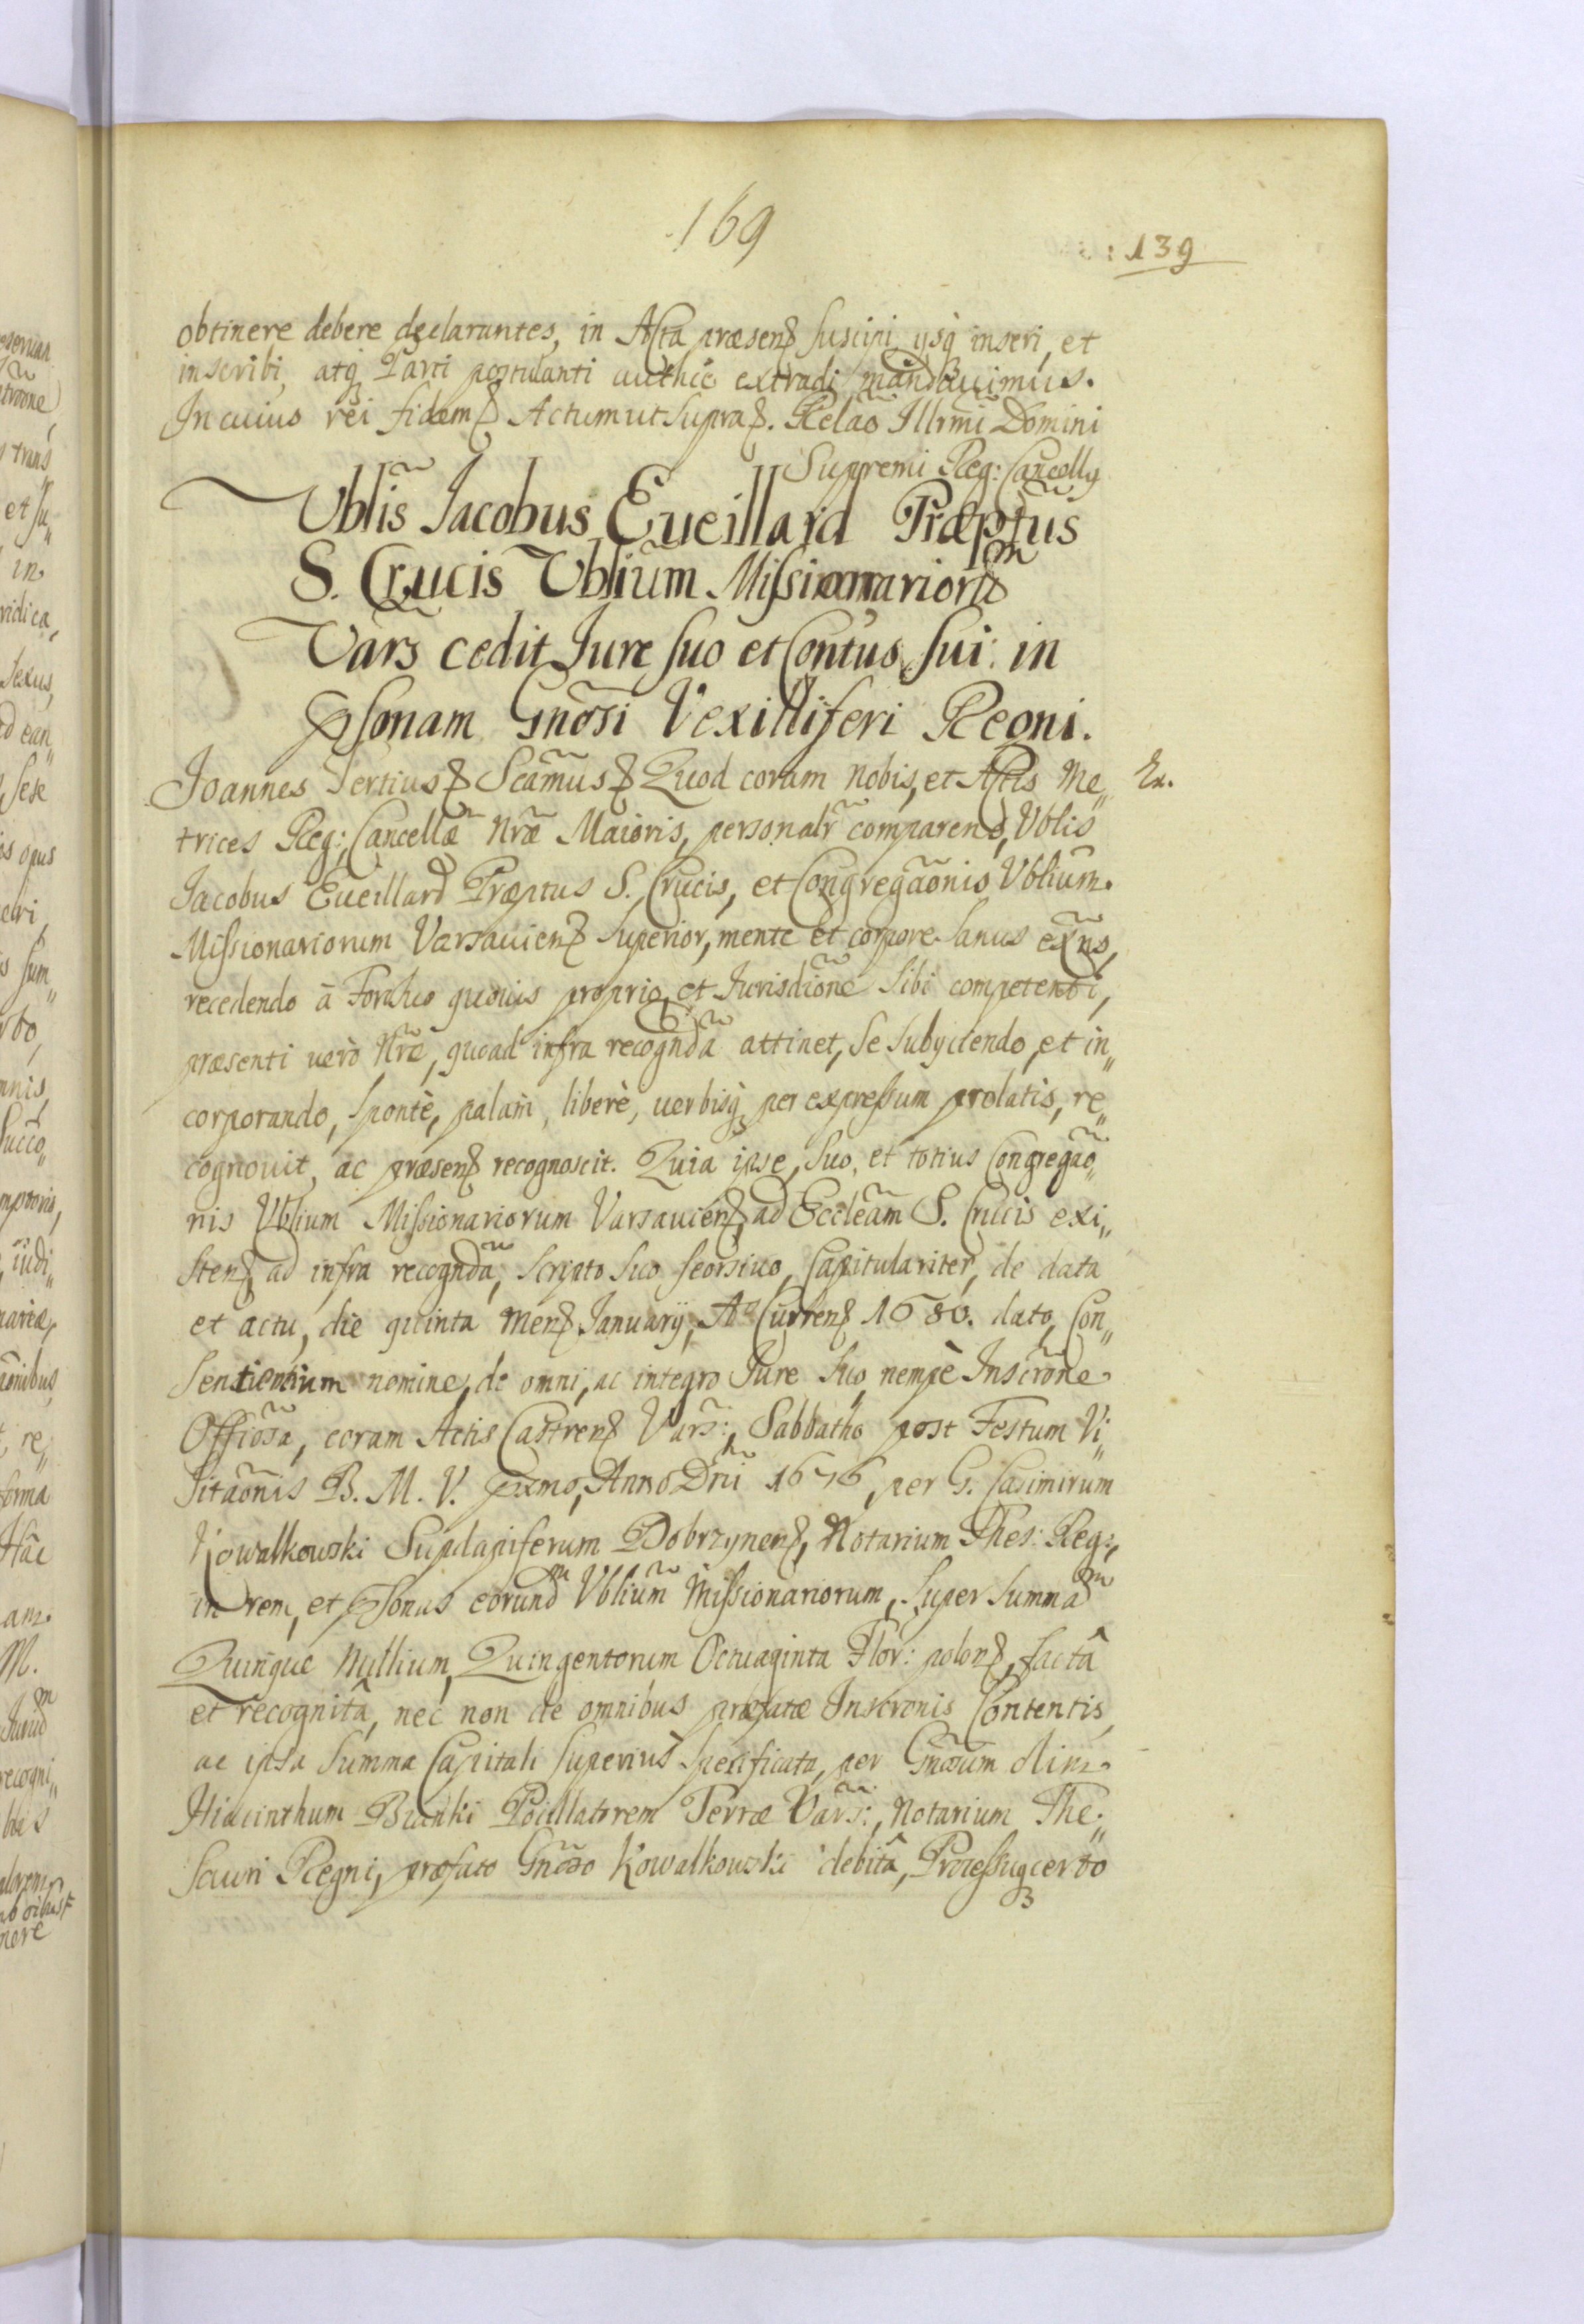 169
139
obtinere debere declarantes, in Acta præsen~ suscipi ysq inseri, et
inscribi, atq Parti postulanti authẽ extradi mandavimus.
In cuius rei fidem~ Actum ut supra~. Relaõ Illrmi Domini
Supremi Reg: Cancelly
Vblis Jacobus Eueillard Præptus
S. Crucis Vblium Missionariorũ
Vars cedit Jure suo et Contus sui: in
psonam Gnosi Vexilliferi Regni.
Joannes Tertius~ Scamus~ Quod coram nobis, et Actis Me„ Ex.
trices Reg:, Cancellæ Nræ Maioris, personalr comparens, Vblis
Jacobus Eueillard Præptus S. Crucis, et Congregaonis Vblium
Missionariorum Varsauien~ Superior, mente et corpore sanus exns,
recedendo à Foro suo quouis proprio, et Jurisdione sibi competenti,
præsenti uerò Nræ, quoad infra recognda attinet, se subyciendo, et in„
corporando, spontè, palam, liberè, uerbisq per expressum prolatis, re„
cognouit, ac præsen~ recognoscit. Quia ipse, suo, et totius Congregao„
nis Vblium Missionariorum Varsauien~ ad Eccleam S. Crucis exi„
sten~, ad infra recognda, scripto suo seorsiuo, Capitulariter, de data
et actu, die quinta Men~ January, Aº Curren~ 1680. dato, Con„
sentientium nomine, de omni, ac integro Jure suo, nempè Inscrone
Offiosa, coram Actis Castren~ Vars:, Sabbatho post Festum Vi„
sitaonis B. M. V. pxmo, Anno Dni 1676, per G. Casimirum
Kowalkowski Supdapiferum Dobrzynen~, Notarium Thes: Reg:,
in rem, et psonas eorundm Vblium Missionariorum, super summam
Quinque Millium, Quingentorum Octuaginta Flor: polon~, factâ
et recognitâ, nec non de omnibus præfatæ Inscronis Contentis,
ac ipsa Summa Capitali superius specificata, per Gnosum olim
Hiacinthum Bianki Pocillatorem Terræ Vars:, Notarium The„
sauri Regni, præfato Gnoso Kowalkowski debitâ, Processuq certo